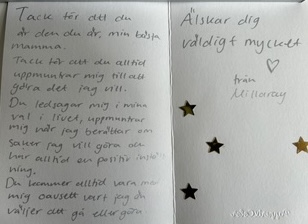 Tack för att du
är den du är, min bästa
mamma.
Tack för att du alltid
uppmuntrar mig till att
göra det jag vill.
Du ledsagar mig i mina
val i livet, uppmuntrar
mig när jag berättar om
saker jag vill göra och
har alltid en positiv inställ
ning.
Du kommer alltid vara med
mig oavsett vart jag
väljer det gå eller göra
Älskar dig
väldigt mycket
från